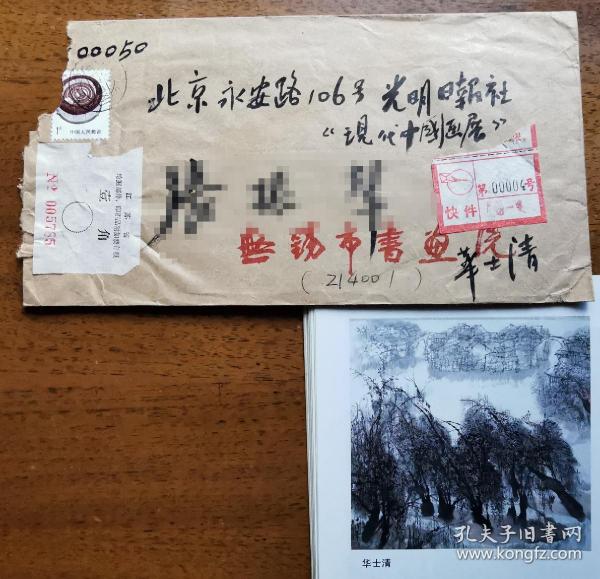 00050
北京永安路106号 光明日報社
《现代中国画展》
1分
中国人民邮政
江苏省
壹角
№ 005785
第00004号
快件
無锡市書画院
(214001)
華士清
华士清
孔夫子旧书网
www.kongfz.com